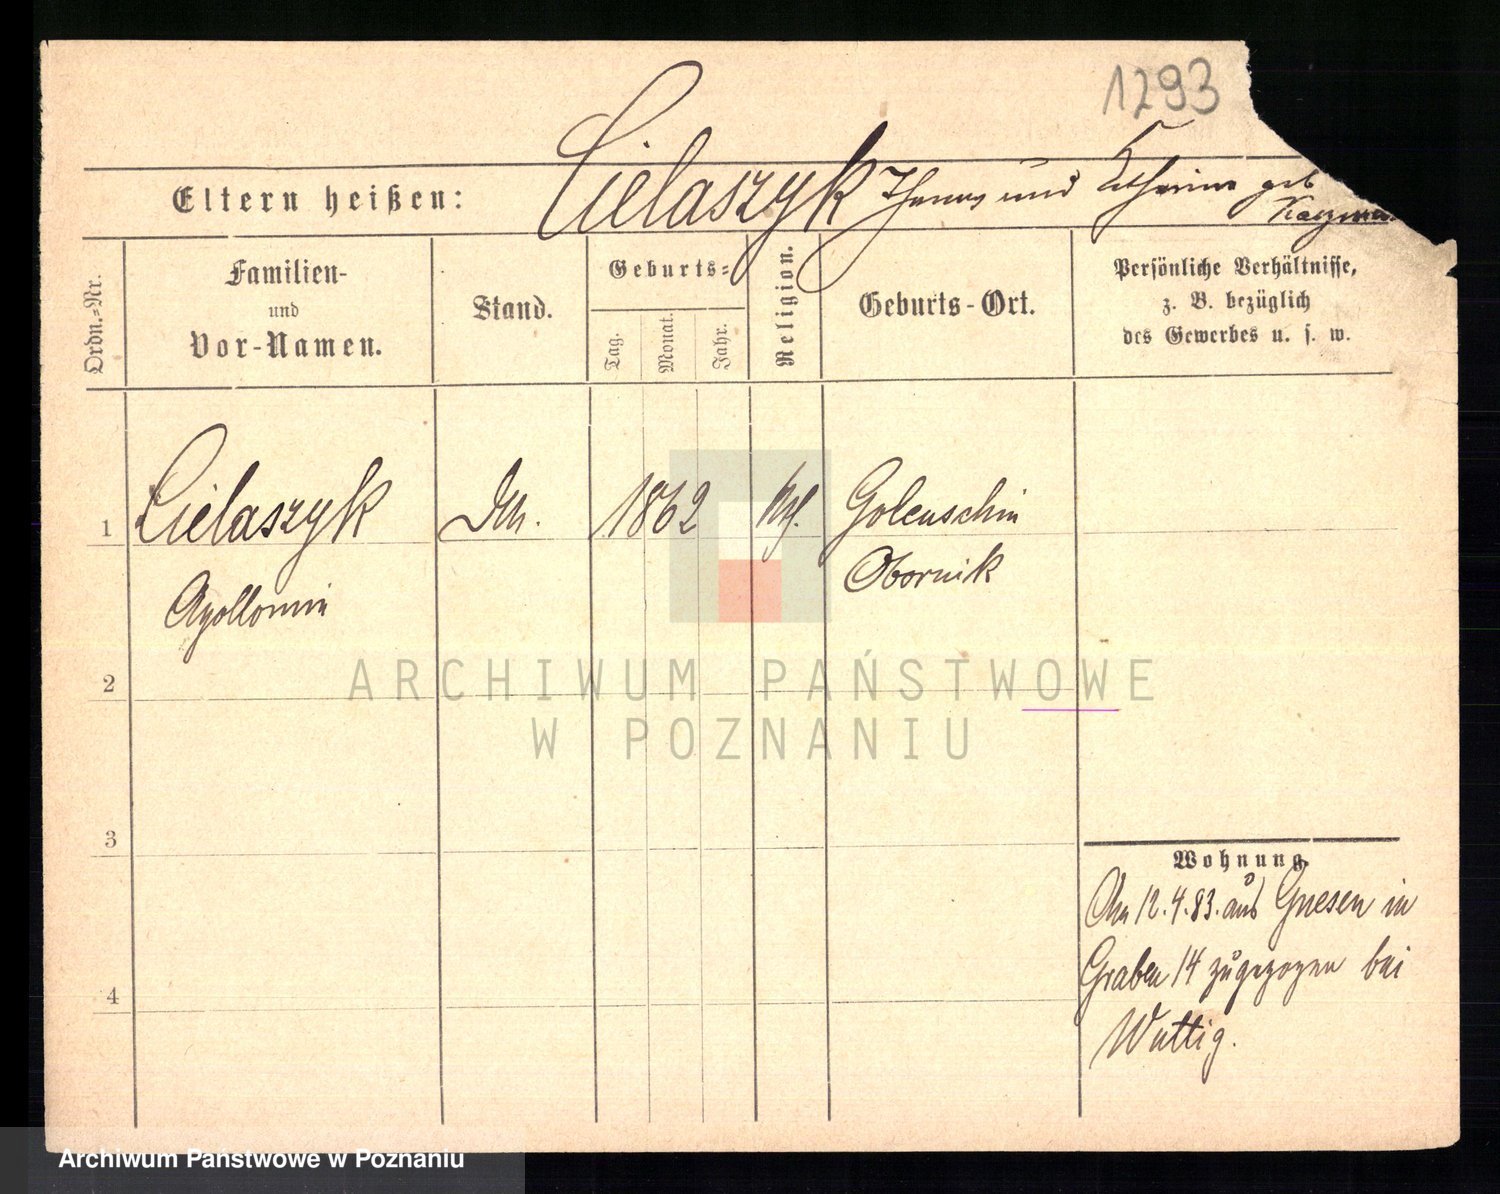 1293
Eltern heißen: Cielaszyk Thomas und Katharine geb
Familien-
und
Vor-Namen.
Ordn.-Nr.
Stand.
Geburts-
Tag.
Monat.
Jahr.
Religion.
Geburts-Ort.
Persönliche Verhältnisse,
z. B. bezüglich
des Gewerbes u. s. w.
1 Cielaszyk 1862 Golenschin
Apollonia Obornik
2
3
4
Wohnung.
Am 12.4.83. aus Gnesen in
Graben 14 zugezogen bei
Wuttig.
ARCHIWUM PAŃSTWOWE
W POZNANIU
Archiwum Państwowe w Poznaniu